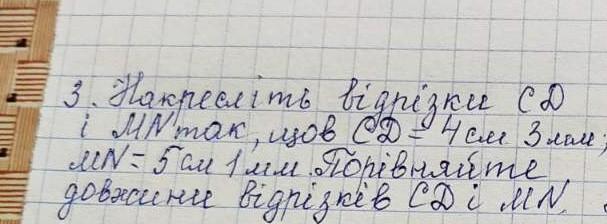 3. Накресліть відрізки CD
і MN так, щов CD = 4 см 3 мм,
MN = 5 см 1 мм. Порівняйте
довжини відрізків CD і MN.